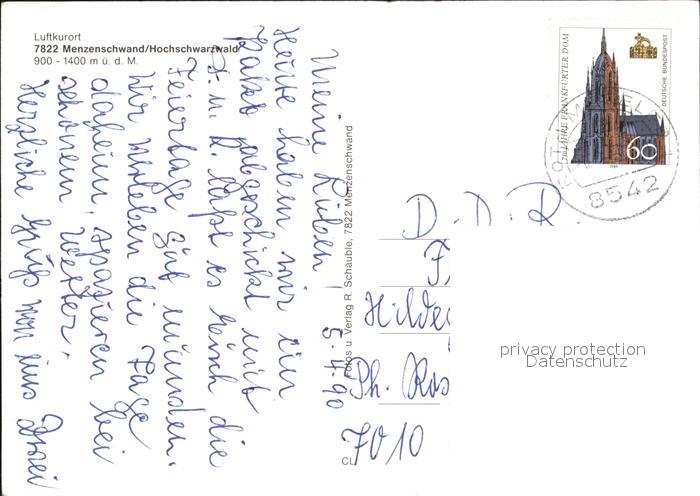 Luftkurort
7822 Menzenschwand/Hochschwarzwald
900 - 1400 m ü. d. M.
Meine Lieben!
5.4.90
Heute haben wir ein
Paket abgeschickt mit
T. u. K. Laßt es Euch die
Feiertage gut munden.
Wir verleben die Tage
daheim, spazieren bei
schönem Wetter.
Herzliche Grüße von uns Zwei
Fotos u. Verlag R. Schäuble, 7822 Menzenschwand
JAHRE FRANKFURTER DOM
DEUTSCHE BUNDESPOST
60
8542
D.D.R.
Hilde
Ph. Ros
7010
CL
privacy protection
Datenschutz